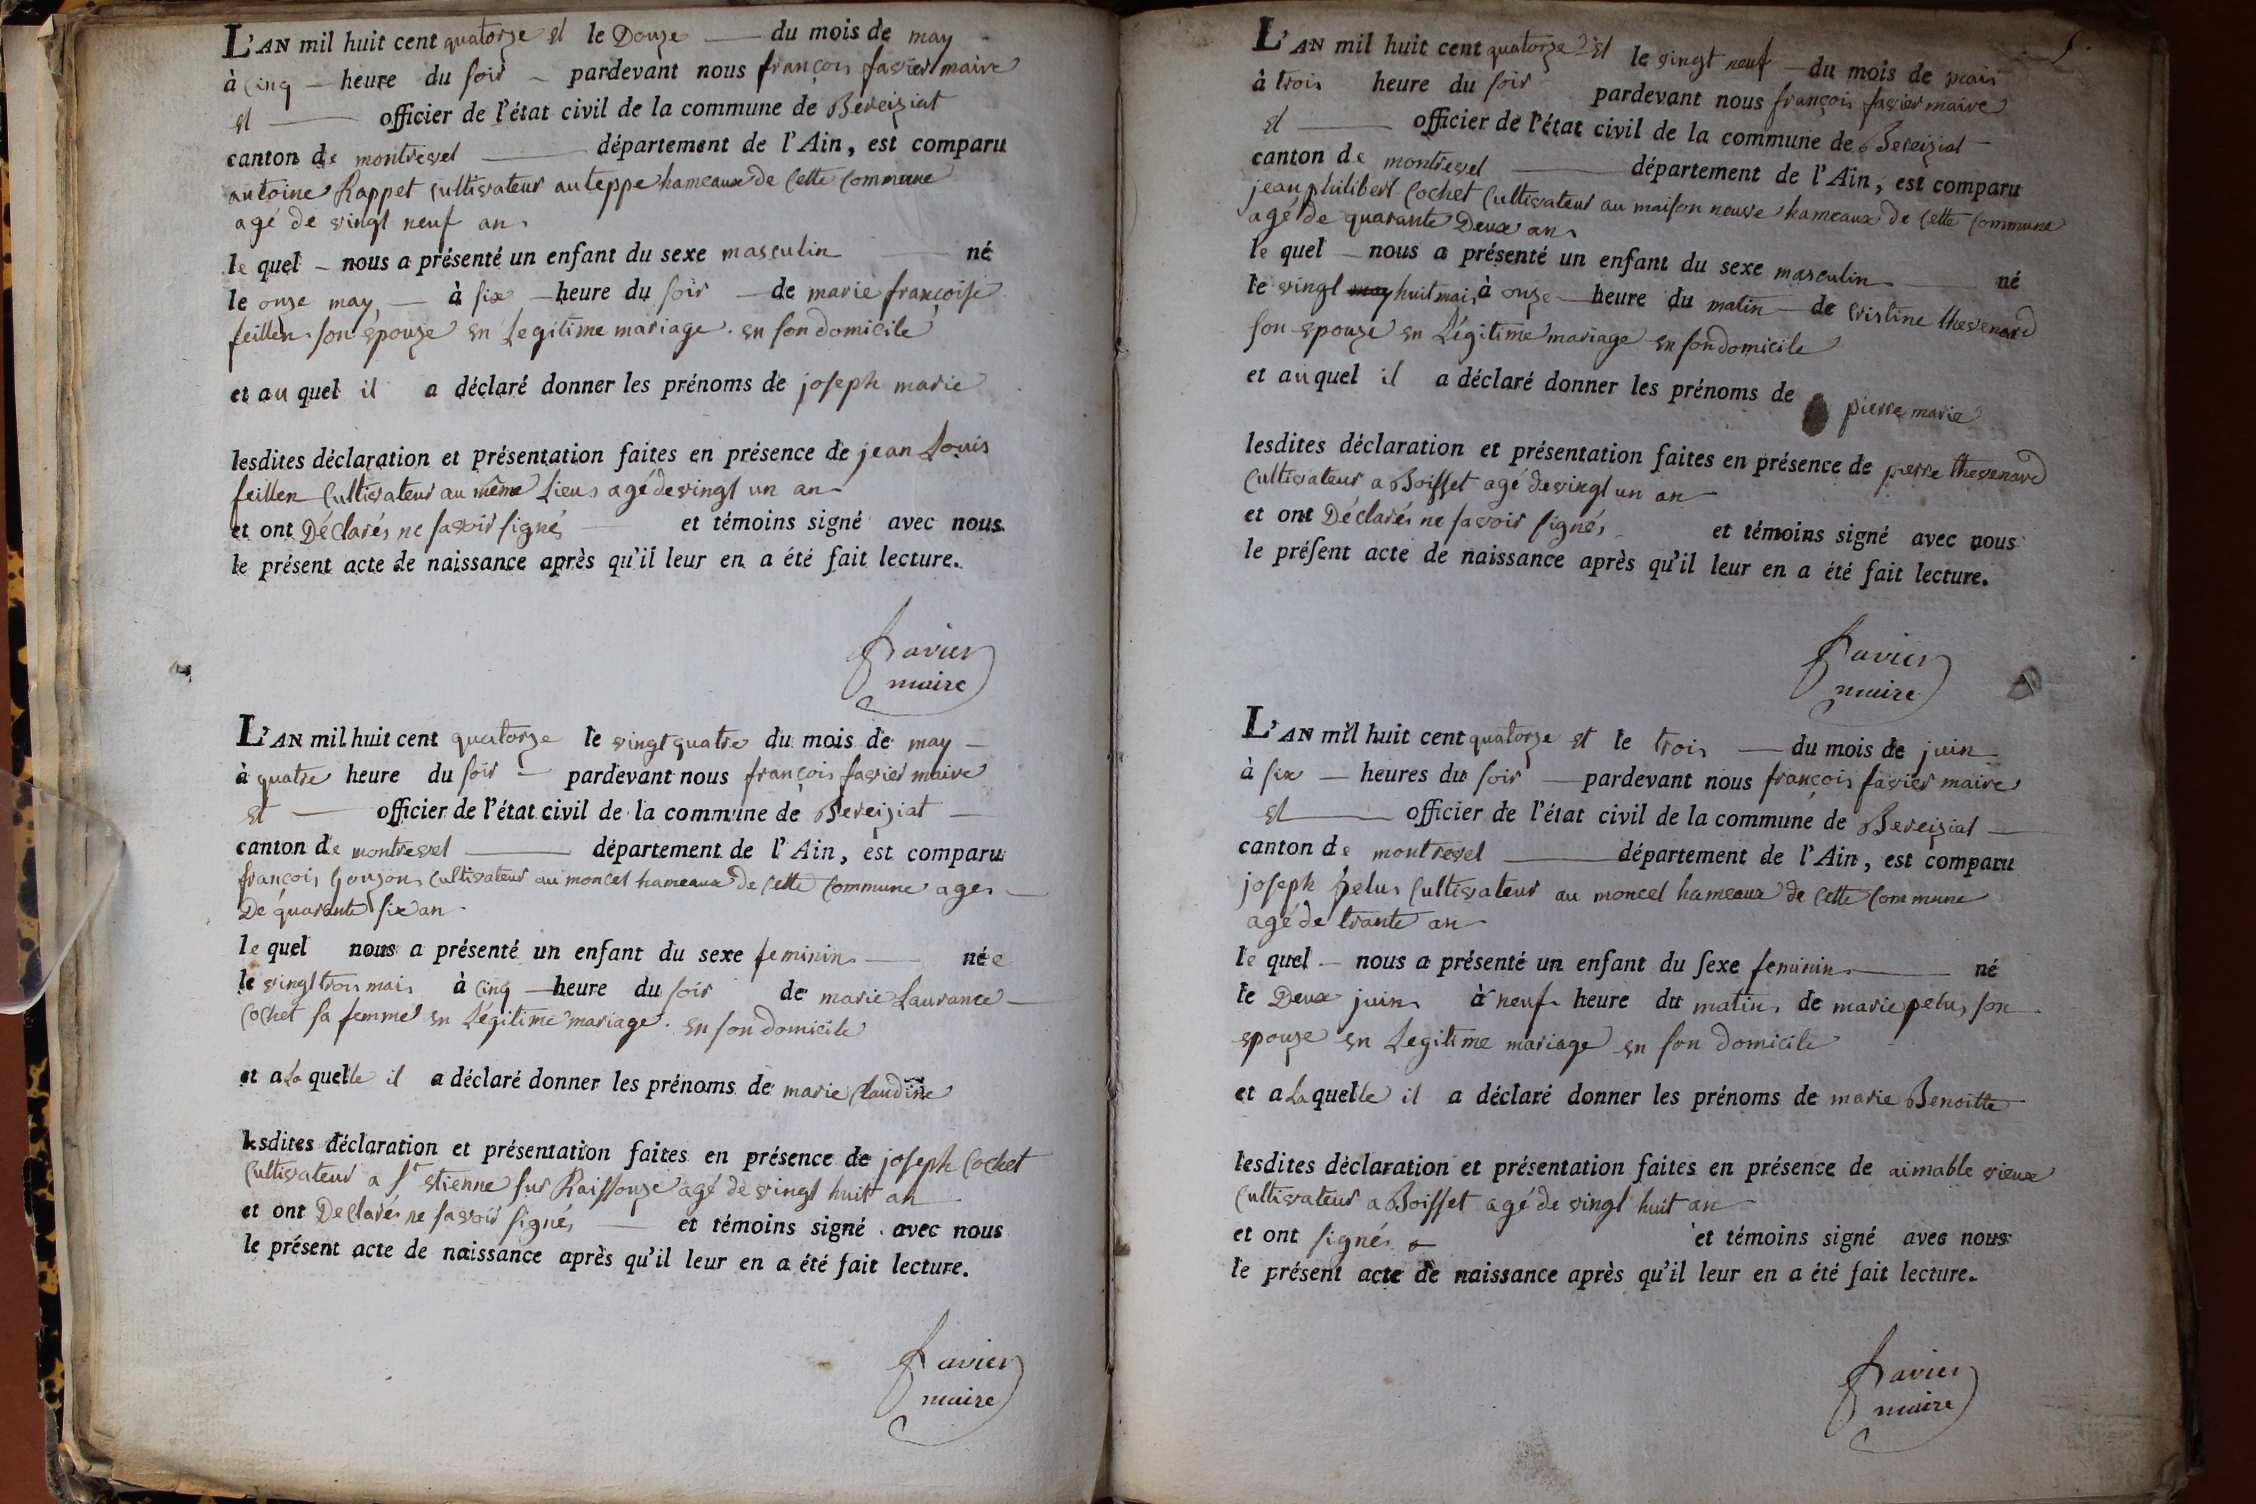 L'AN mil huit cent quatorze et le Douze du mois de may
à cinq heure du soir pardevant nous françois favier maire
et officier de l'état civil de la commune de Bereiziat
canton de montrevel département de l'Ain, est comparu
antoine Rappet cultivateur au teppe hameaux de cette commune
agé de vingt neuf an
le quel nous a présenté un enfant du sexe masculin né
le onze may à six heure du soir de marie françoise
feillen son epouze en Legitime mariage. en son domicile
et au quel il a déclaré donner les prénoms de joseph marie
lesdites déclaration et présentation faites en présence de jean Louis
feillen cultivateur au même Lieu agé de vingt un an
et ont Déclarés ne savoir signés et témoins signé avec nous
le présent acte de naissance après qu'il leur en a été fait lecture.
favier
maire
L'AN mil huit cent quatorze le vingt quatre du mois de may
à quatre heure du soir pardevant nous françois favier maire
et officier de l'état civil de la commune de Bereiziat
canton de montrevel département de l'Ain, est comparu
françois Gonzon cultivateur au moncel hameaux de cette commune ages
De quarante six an
le quel nous a présenté un enfant du sexe feminin née
le vingt trois mai à cinq heure du soir de marie Laurance
Cochet sa femme en Légitime mariage. en son domicile
et a La quelle il a déclaré donner les prénoms de marie Claudine
lesdites déclaration et présentation faites en présence de joseph Cochet
Cultivateur a St etienne sur Raissouze agé de vingt huit an
et ont Declarés ne savoir signés et témoins signé avec nous
le présent acte de naissance après qu'il leur en a été fait lecture.
favier
maire
L'AN mil huit cent quatorze et le vingt neuf du mois de mais
à trois heure du soir pardevant nous françois favier maire
et officier de l'état civil de la commune de Bereiziat
canton de montrevel département de l'Ain, est comparu
jean philibert Cochet Cultivateur au maison neuve hameaux de cette commune
agé de quarante Deux an
le quel nous a présenté un enfant du sexe masculin né
le vingt may huit mais à onze heure du matin de cristine thevenard
son epouze en Légitime mariage en son domicile
et au quel il a déclaré donner les prénoms de pierre marie
lesdites déclaration et présentation faites en présence de pierre thevenard
Cultivateur a Boisset agé de vingt un an
et ont Déclarés ne savoir signés et témoins signé avec nous
le présent acte de naissance après qu'il leur en a été fait lecture.
favier
maire
L'AN mil huit cent quatorze et le trois du mois de juin
à six heures du soir pardevant nous françois favier maire
et officier de l'état civil de la commune de Bereiziat
canton de montrevel département de l'Ain, est comparu
joseph pelus Cultivateur au moncel hameaux de cette Commune
agé de trante an
le quel nous a présenté un enfant du sexe feminin né
le Deux juin à neuf heure du matin de marie pelus son
epouze en Legitime mariage en son domicile
et a La quelle il a déclaré donner les prénoms de marie Benoitte
lesdites déclaration et présentation faites en présence de aimable vieux
Cultivateur a Boisset agé de vingt huit an
et ont signés et témoins signé avec nous
le présent acte de naissance après qu'il leur en a été fait lecture.
favier
maire